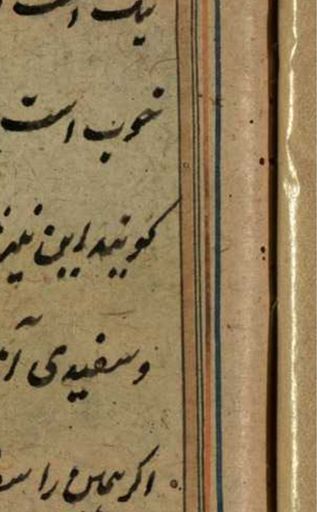 نیک است
خوب است
کویند این نیز
و سفیدی آ
اکر همین را